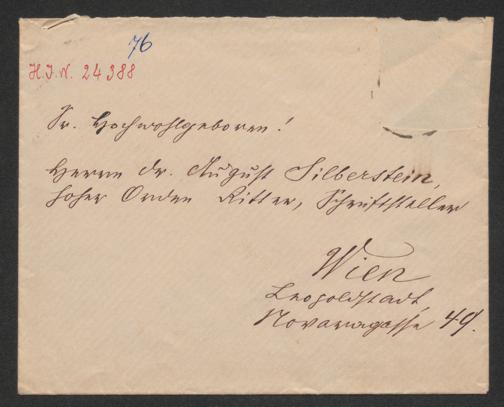 76
H.I.N. 24388
Sr. Hochwohlgeboren!
Herrn Dr. August Silberstein,
hoher Orden Ritter, Schriftsteller
Wien
Leopoldstadt
Novaragasse 49.